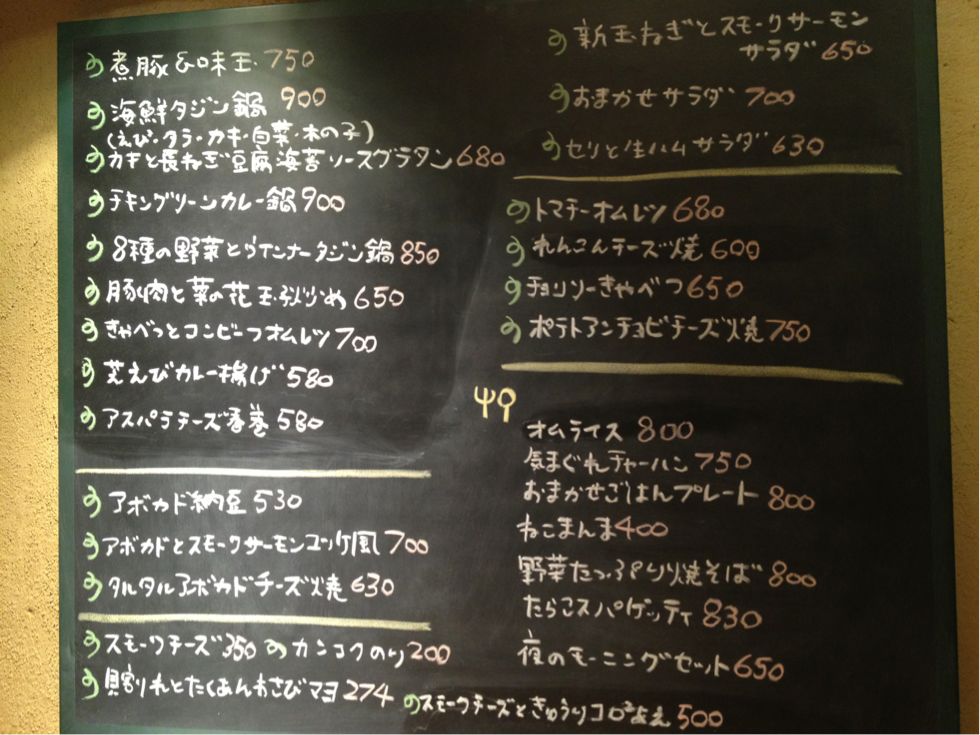 煮豚&味玉 750
海鮮タジン鍋 900
(えび・タラ・カキ・白菜・木の子)
カキと長ねぎ豆腐海苔ソースグラタン 680
チキングリーンカレー鍋 900
8種の野菜とウインナータジン鍋 850
豚肉と菜の花玉子炒め 650
きゃべつとコンビーフオムレツ 700
芝えびカレー揚げ 580
アスパラチーズ春巻 580
アボカド納豆 530
アボカドとスモークサーモンユッケ風 700
タルタルアボカドチーズ焼 630
スモークチーズ 350 カンコクのり 200
貝割れとたくあんわさびマヨ 274
スモークチーズときゅうりコロコロあえ 500
新玉ねぎとスモークサーモン
サラダ 650
おまかせサラダ 700
セリと生ハムサラダ 630
トマチーオムレツ 680
れんこんチーズ焼 600
チョリソーきゃべつ 650
ポテトアンチョビチーズ焼 750
オムライス 800
気まぐれチャーハン 750
おまかせごはんプレート 800
ねこまんま 400
野菜たっぷり焼そば 800
たらこスパゲッティ 830
夜のモーニングセット 650